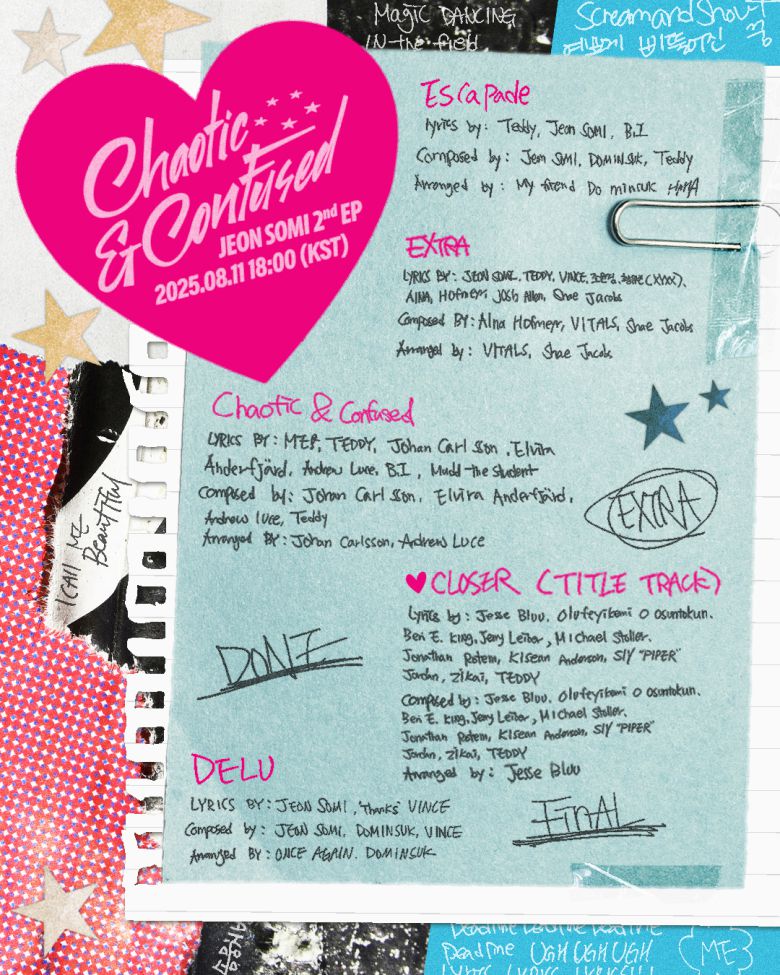 Magic DANCING
IN the field
Screamandshout
Chaotic
& Confused
JEON SOMI 2nd EP
2025.08.11 18:00 (KST)
Escapade
Lyrics by: Teddy, Jeon SOMI, B.I
Composed by: Jeon SMI, DOMINSUK, Teddy
Arranged by: My friend Do minsuk HAHA
EXTRA
LYRICS BY: JEON SOMI, TEDDY, VINCE,
AINA, Hofmeyr, Josh Allen, Shae Jacobs
Composed BY: AIna Hofmeyr, VITALS, Shae Jacobs
Arranged by: VITALS, Shae Jacobs
Chaotic & Confused
LYRICS BY: ME!, TEDDY, Johan Carlsson, Elvira
Anderfjärd, Andrew Luce, B.I, Mudd the student
Composed by: Johan Carlsson, Elvira Anderfjärd,
Andrew Luce, Teddy
Arranged BY: Johan Carlsson, Andrew Luce
EXTRA
I CAll ME
Beautiful
♥ CLOSER (TITLE TRACK)
Lyrics by: Jesse Bluu, Olufeyikemi O osuntokun.
Ben E. King, Jerry Leiber, Michael Stoller.
Jonathan Rotem, Kisean Anderson, SlY "PIPER"
Jordan, Zikai, TEDDY
Composed by: Jesse Bluu, Olufeyikemi O osuntokun.
Ben E. King, Jerry Leiber, Michael Stoller.
Jonathan Rotem, Kisean Anderson, SlY "PIPER"
Jordan, Zikai, TEDDY
Arranged by: Jesse Bluu
DONE
DELU
LYRICS BY: JEON SOMI, "thanks" VINCE
Composed by: JEON SOMI, DOMINSUK, VINCE
Arranged BY: ONCE AGAIN. DOMINSUK
FinAL
Deadline Deadline Deadline
Deadline UGH UGH UGH
(ME)